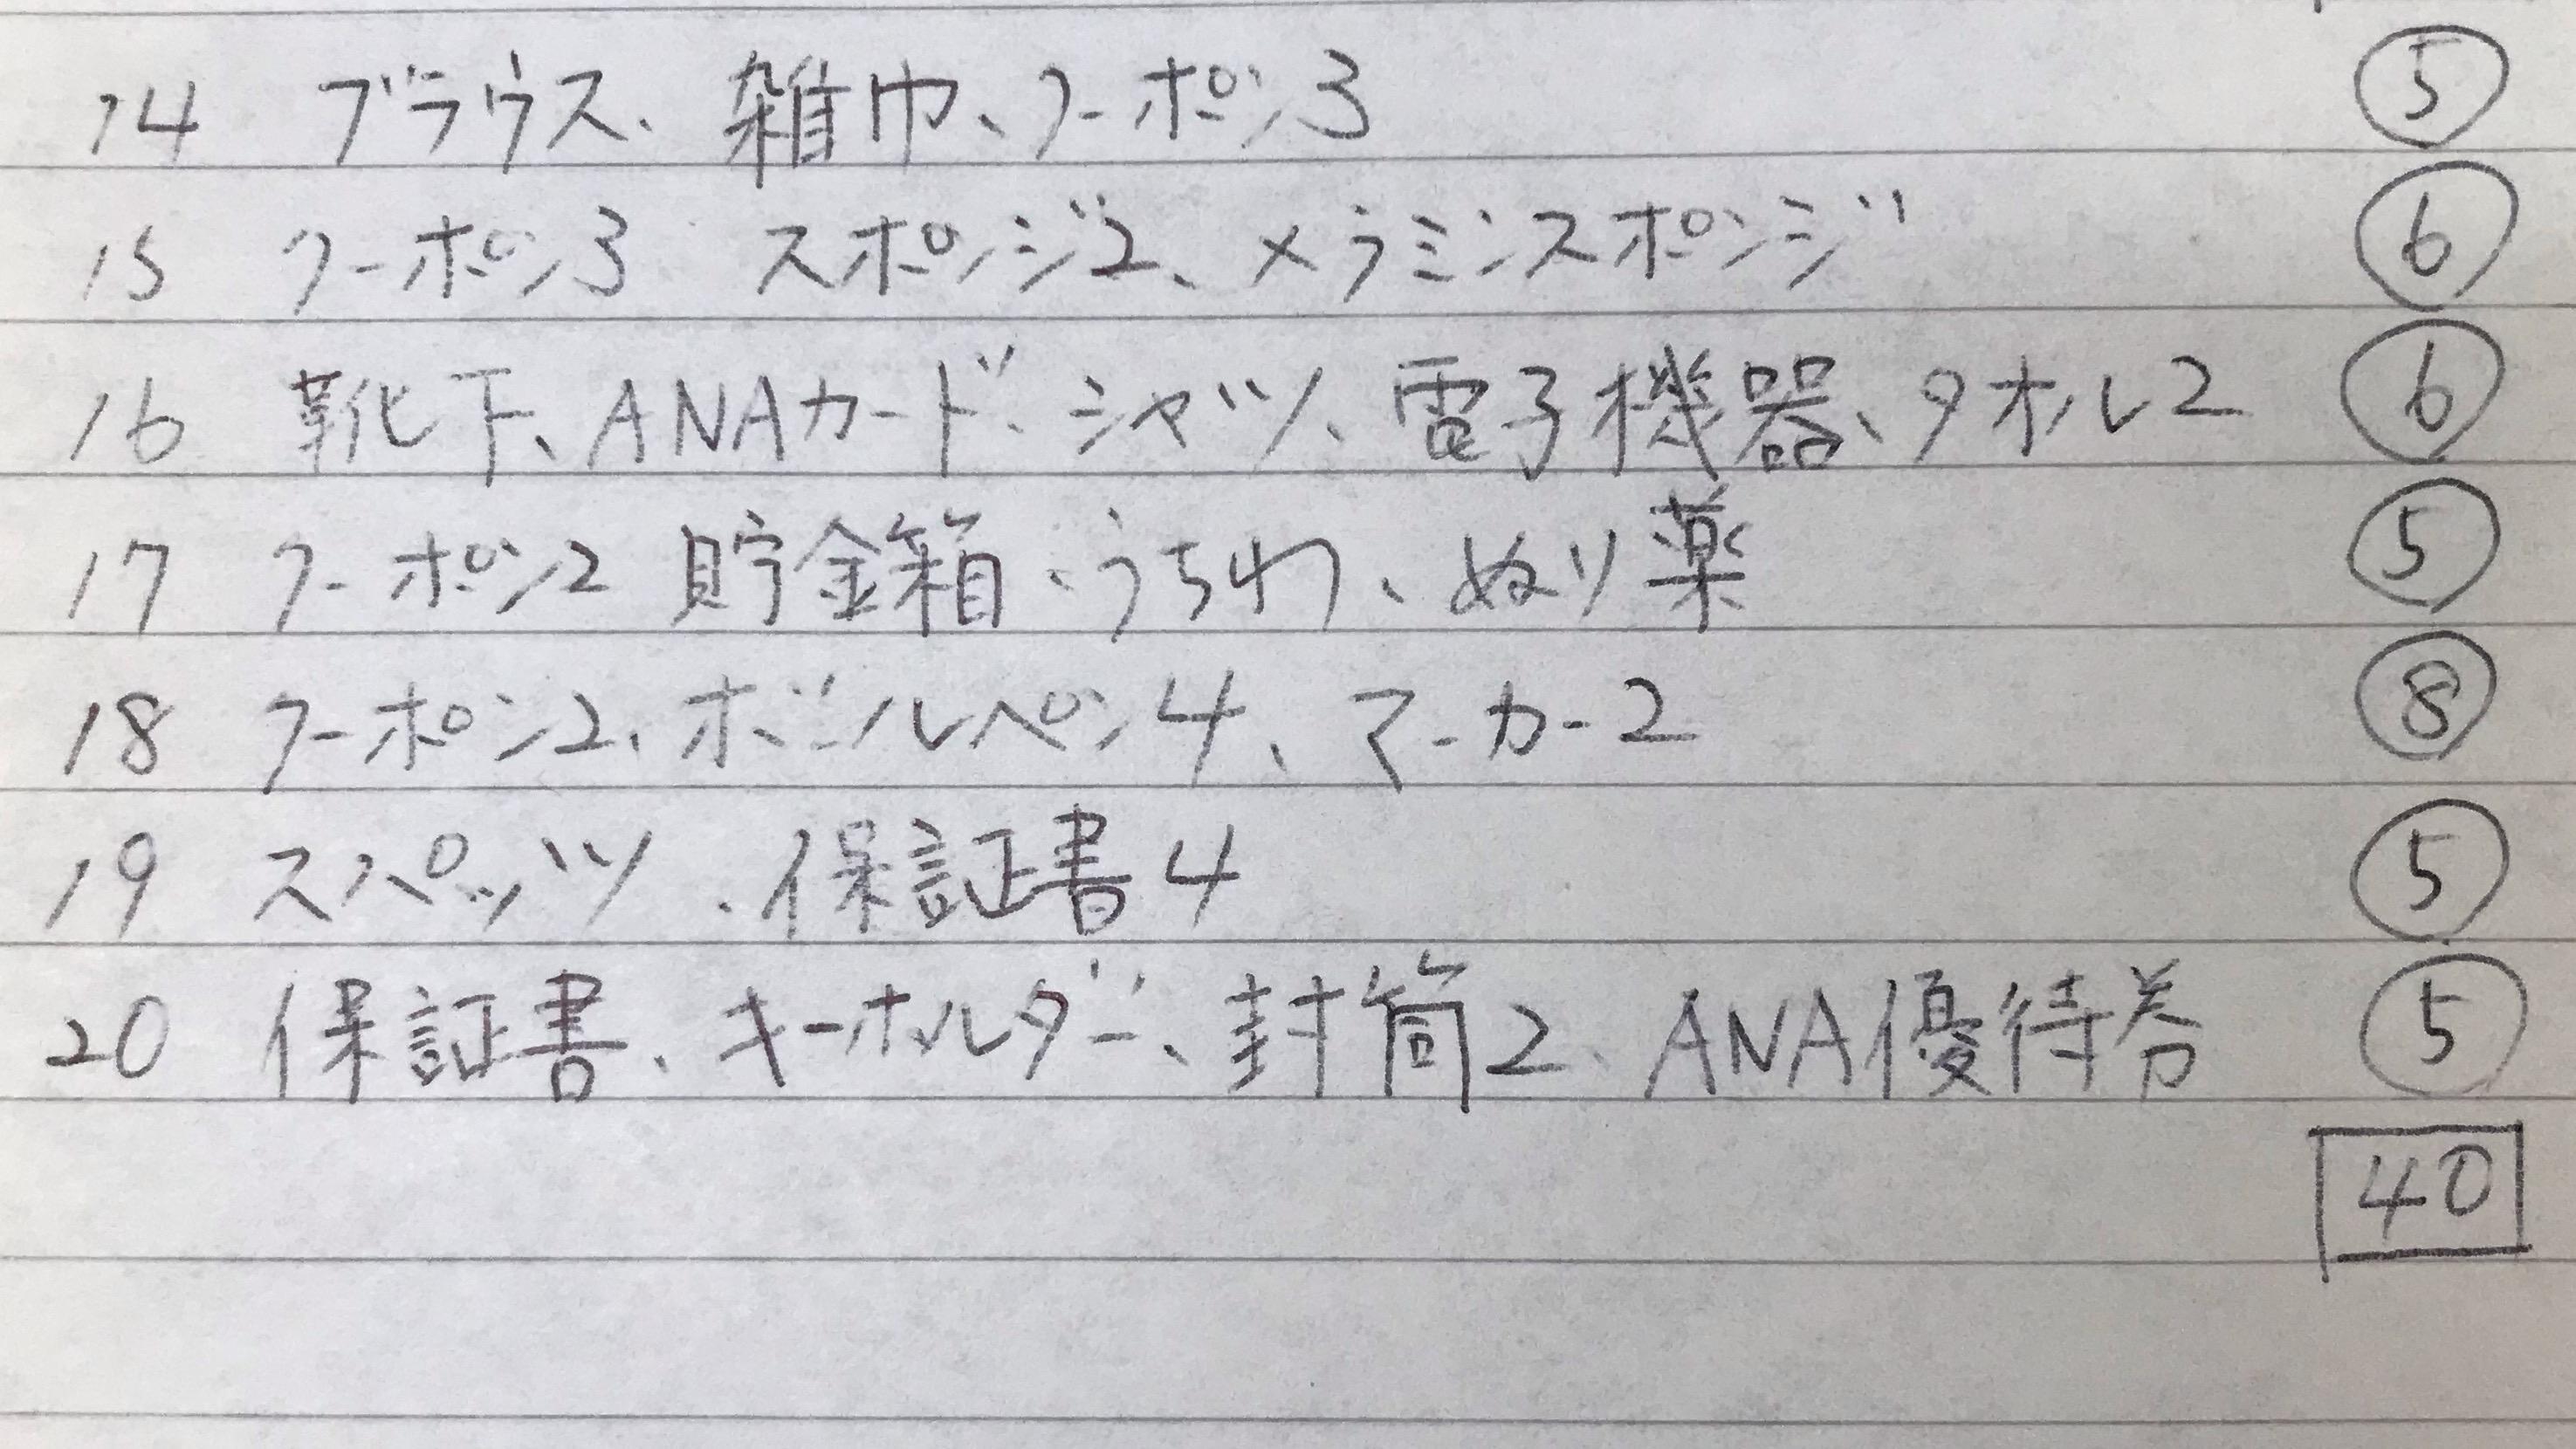 14 ブラウス、雑巾、クーポン3 ⑤
15 クーポン3 スポンジ2、メラミンスポンジ ⑥
16 靴下、ANAカード、シャツ、電子機器、タオル2 ⑥
17 クーポン2 貯金箱、うちわ、ぬり薬 ⑤
18 クーポン2、ボールペン4、マーカー2 ⑧
19 スパッツ、保証書4 ⑤
20 保証書、キーホルダー、封筒2、ANA優待券 ⑤
40